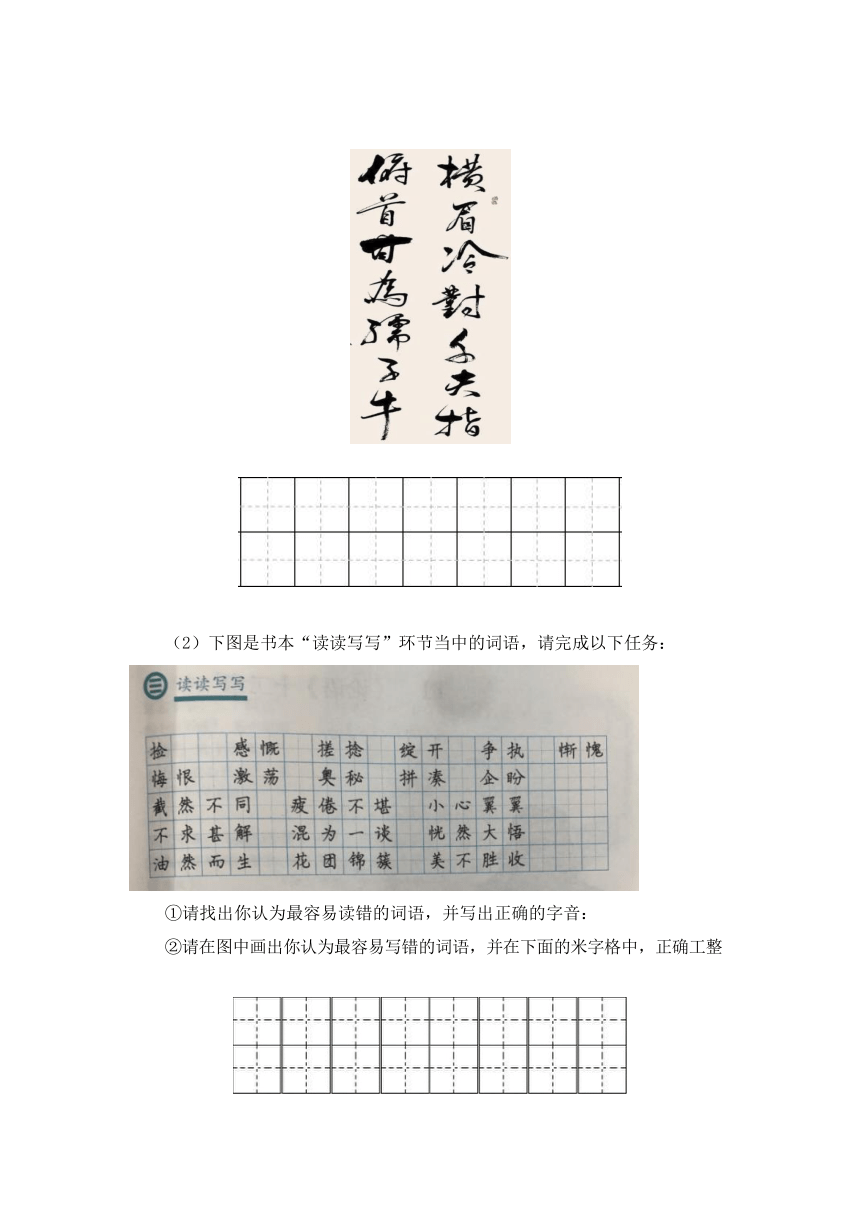 橫眉冷對千夫指
俯首甘為孺子牛
（2）下图是书本“读读写写”环节当中的词语，请完成以下任务：
三 读读写写
捡 感慨 搓捻 绽开 争执 惭愧
悔恨 激荡 奥秘 拼凑 企盼
截然不同 疲倦不堪 小心翼翼
不求甚解 混为一谈 恍然大悟
油然而生 花团锦簇 美不胜收
①请找出你认为最容易读错的词语，并写出正确的字音：
②请在图中画出你认为最容易写错的词语，并在下面的米字格中，正确工整